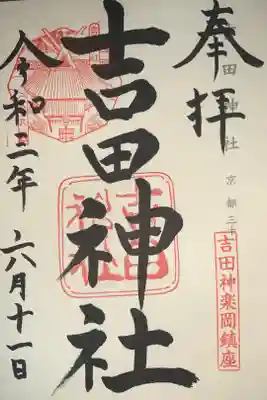 奉拝
吉田神社
京都
吉田神楽岡鎮座
吉田神社
令和三年
六月十一日